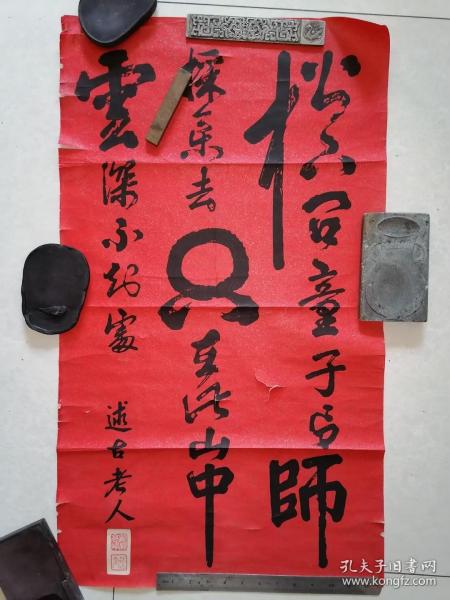 松下问童子言師
採藥去只在此山中
雲深不知處
述古老人
孔夫子旧书网
www.kongfz.com